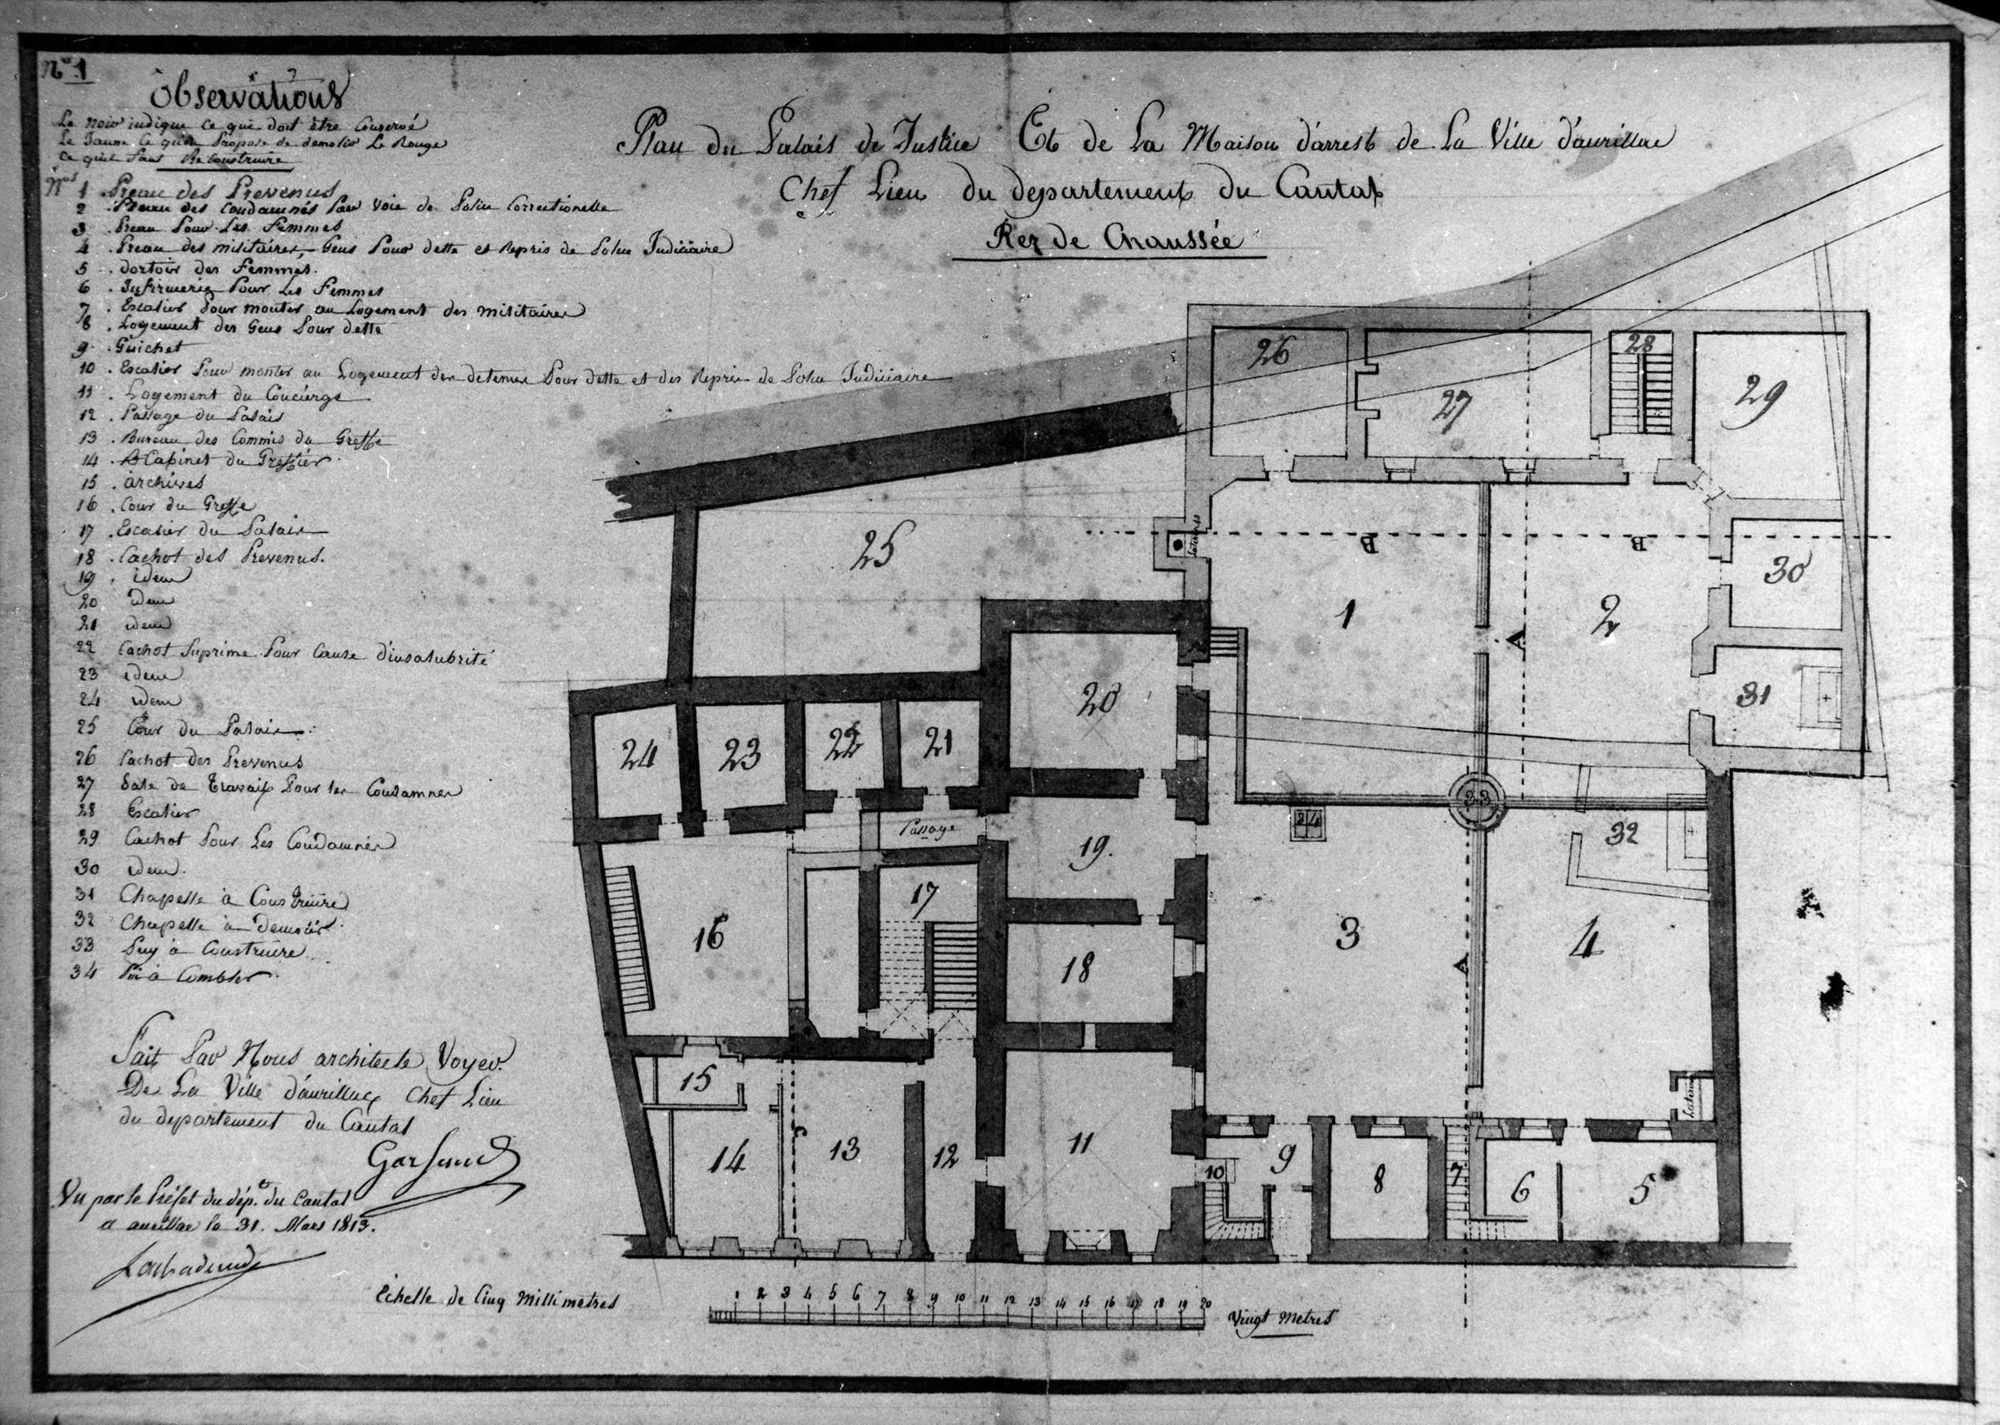 No. 1
Observations
Le Noir indique ce qui doit être Conservé
Le Jaune ce qu'on Propose de demolir Le Rouge
ce qu'il faut Reconstruire
Nos
1 . Preau des Prevenus
2 . Preau des Condamnés Par Voie de Police Correctionelle
3 . Preau Pour Les Femmes
4 . Preau des militaires, Gens Pour dette et Repris de Police Judiciaire
5 . dortoir des Femmes.
6 . Infirmerie Pour Les Femmes
7 . Escalier Pour monter au Logement des militaires
8 . Logement des Gens Pour dette
9 . Guichet
10 . Escalier Pour monter au Logement des detenus Pour dette et des Repris de Police Judiciaire
11 . Logement du Concierge
12 . Passage du Palais
13 . Bureau des Commis du Greffe
14 . Cabinet du Greffier
15 . archives
16 . Cour du Greffe
17 . Escalier du Palais
18 . Cachot des Prevenus.
19 . idem
20 idem
21 idem
22 Cachot Suprimé Pour Cause d'insalubrité
23 idem
24 idem
25 Cour du Palais
26 Cachot des Prevenus
27 Sale de Travail Pour les Condamnés
28 Escalier
29 Cachot Pour Les Condamnés
30 idem.
31 Chapelle à Construire
32 Chapelle à Demolir
33 Puy à Construire
34 Pui à Combler
Fait Par Nous architecte Voyer
De La Ville d'aurillac Chef Lieu
du departement du Cantal
Vu par le Préfet du dépt. du Cantal
a aurillac le 31. Mars 1813.
Plan du Palais de Justice Et de La Maison d'arrest de La Ville d'aurillac
Chef Lieu du departement du Cantal
Rez de Chaussée
26
27
28
29
25
Latrines
B
B
1
2
A
30
31
20
24
23
22
21
33
34
32
Passage
19.
17
16
18
3
4
A
15
Latrines
14
13
12
11
10
9
8
7
6
5
Echelle de Cinq Millimetres
1 2 3 4 5 6 7 8 9 10 11 12 13 14 15 16 17 18 19 20
Vingt Metres